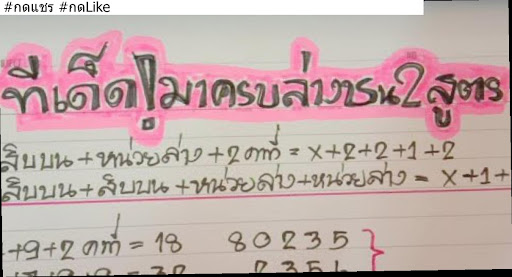 #กดแชร #กดLike
ทีเด็ด!มาครบล่างชน2สูตร
สิบบน+หน่วยล่าง+2คที่=x+2+2+1+2
สิบบน+สิบบน+หน่วยล่าง+หน่วยล่าง=x+1+
+9+2คที่=18 80235